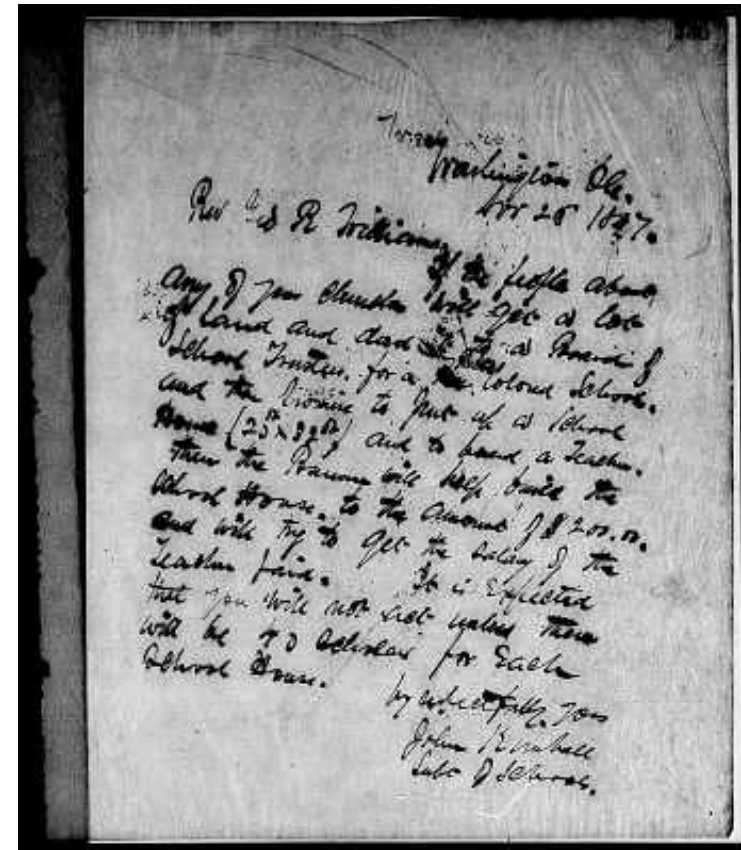 Washington DC.
Nov 26 1867.
Rev R Williams
If the people about
any of your churches will get a lot
of land and deed it to a Board of
School Trustees for a Colored School.
and the promise to put up a School
House (25 x 32) and to board a Teacher.
then the Bureau will help build the
School House. to the amount of $200.00.
and will try to get the salary of the
Teacher paid. It is Expected
that you will not act unless there
will be 40 Scholars for Each
School House.
Respectfully Yours
John Kimball
Supt of Schools.